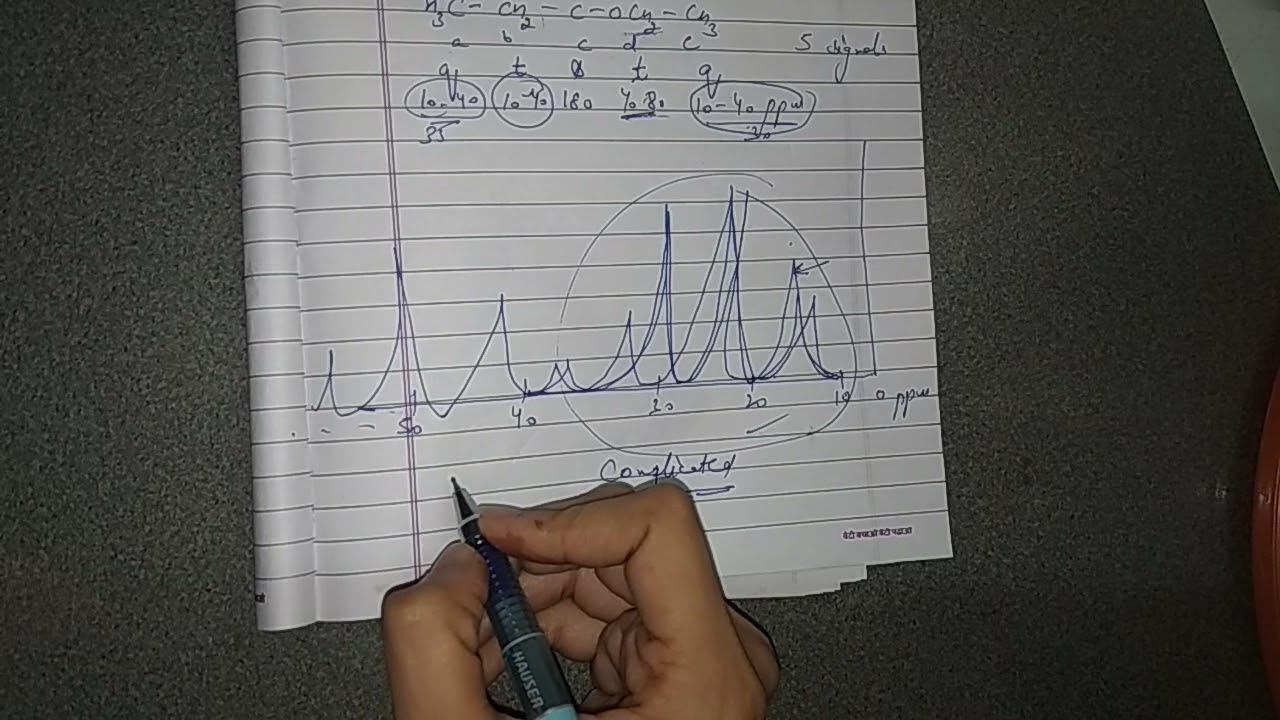 H3C - CH2 - C - OCH2 - CH3
a b c d e 5 signals
q t s t q
10-40 10-40 180 40-80 10-40 ppm
35 30
50 40 30 20 10 0 ppm
Complicated
बेटी बचाओ बेटी पढ़ाओ
HAUSER